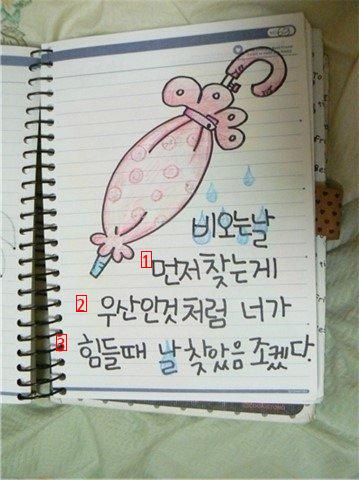 비오는날
1 먼저찾는게
2 우산인것처럼 너가
3 힘들때 날 찾았음 조켔다.